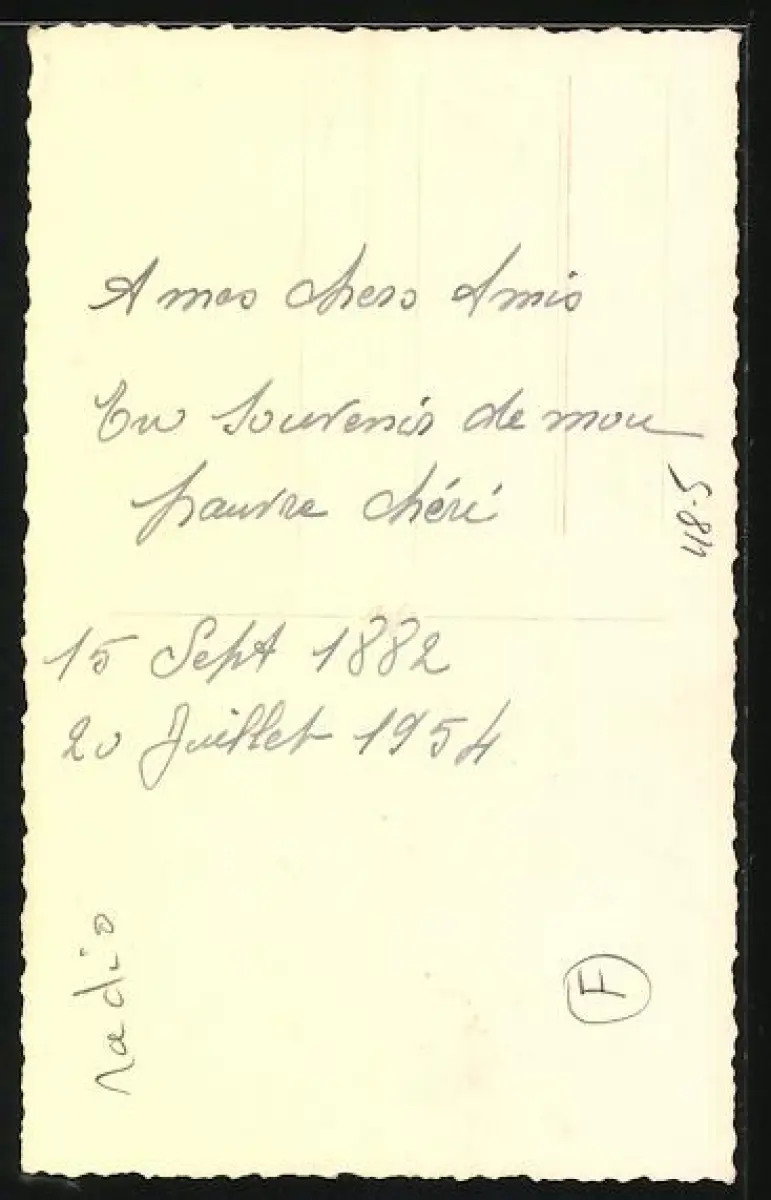 A mes chers Amis
En Souvenir de mon
pauvre chéri
48.5
15 Sept 1882
20 Juillet 1954
radio
F